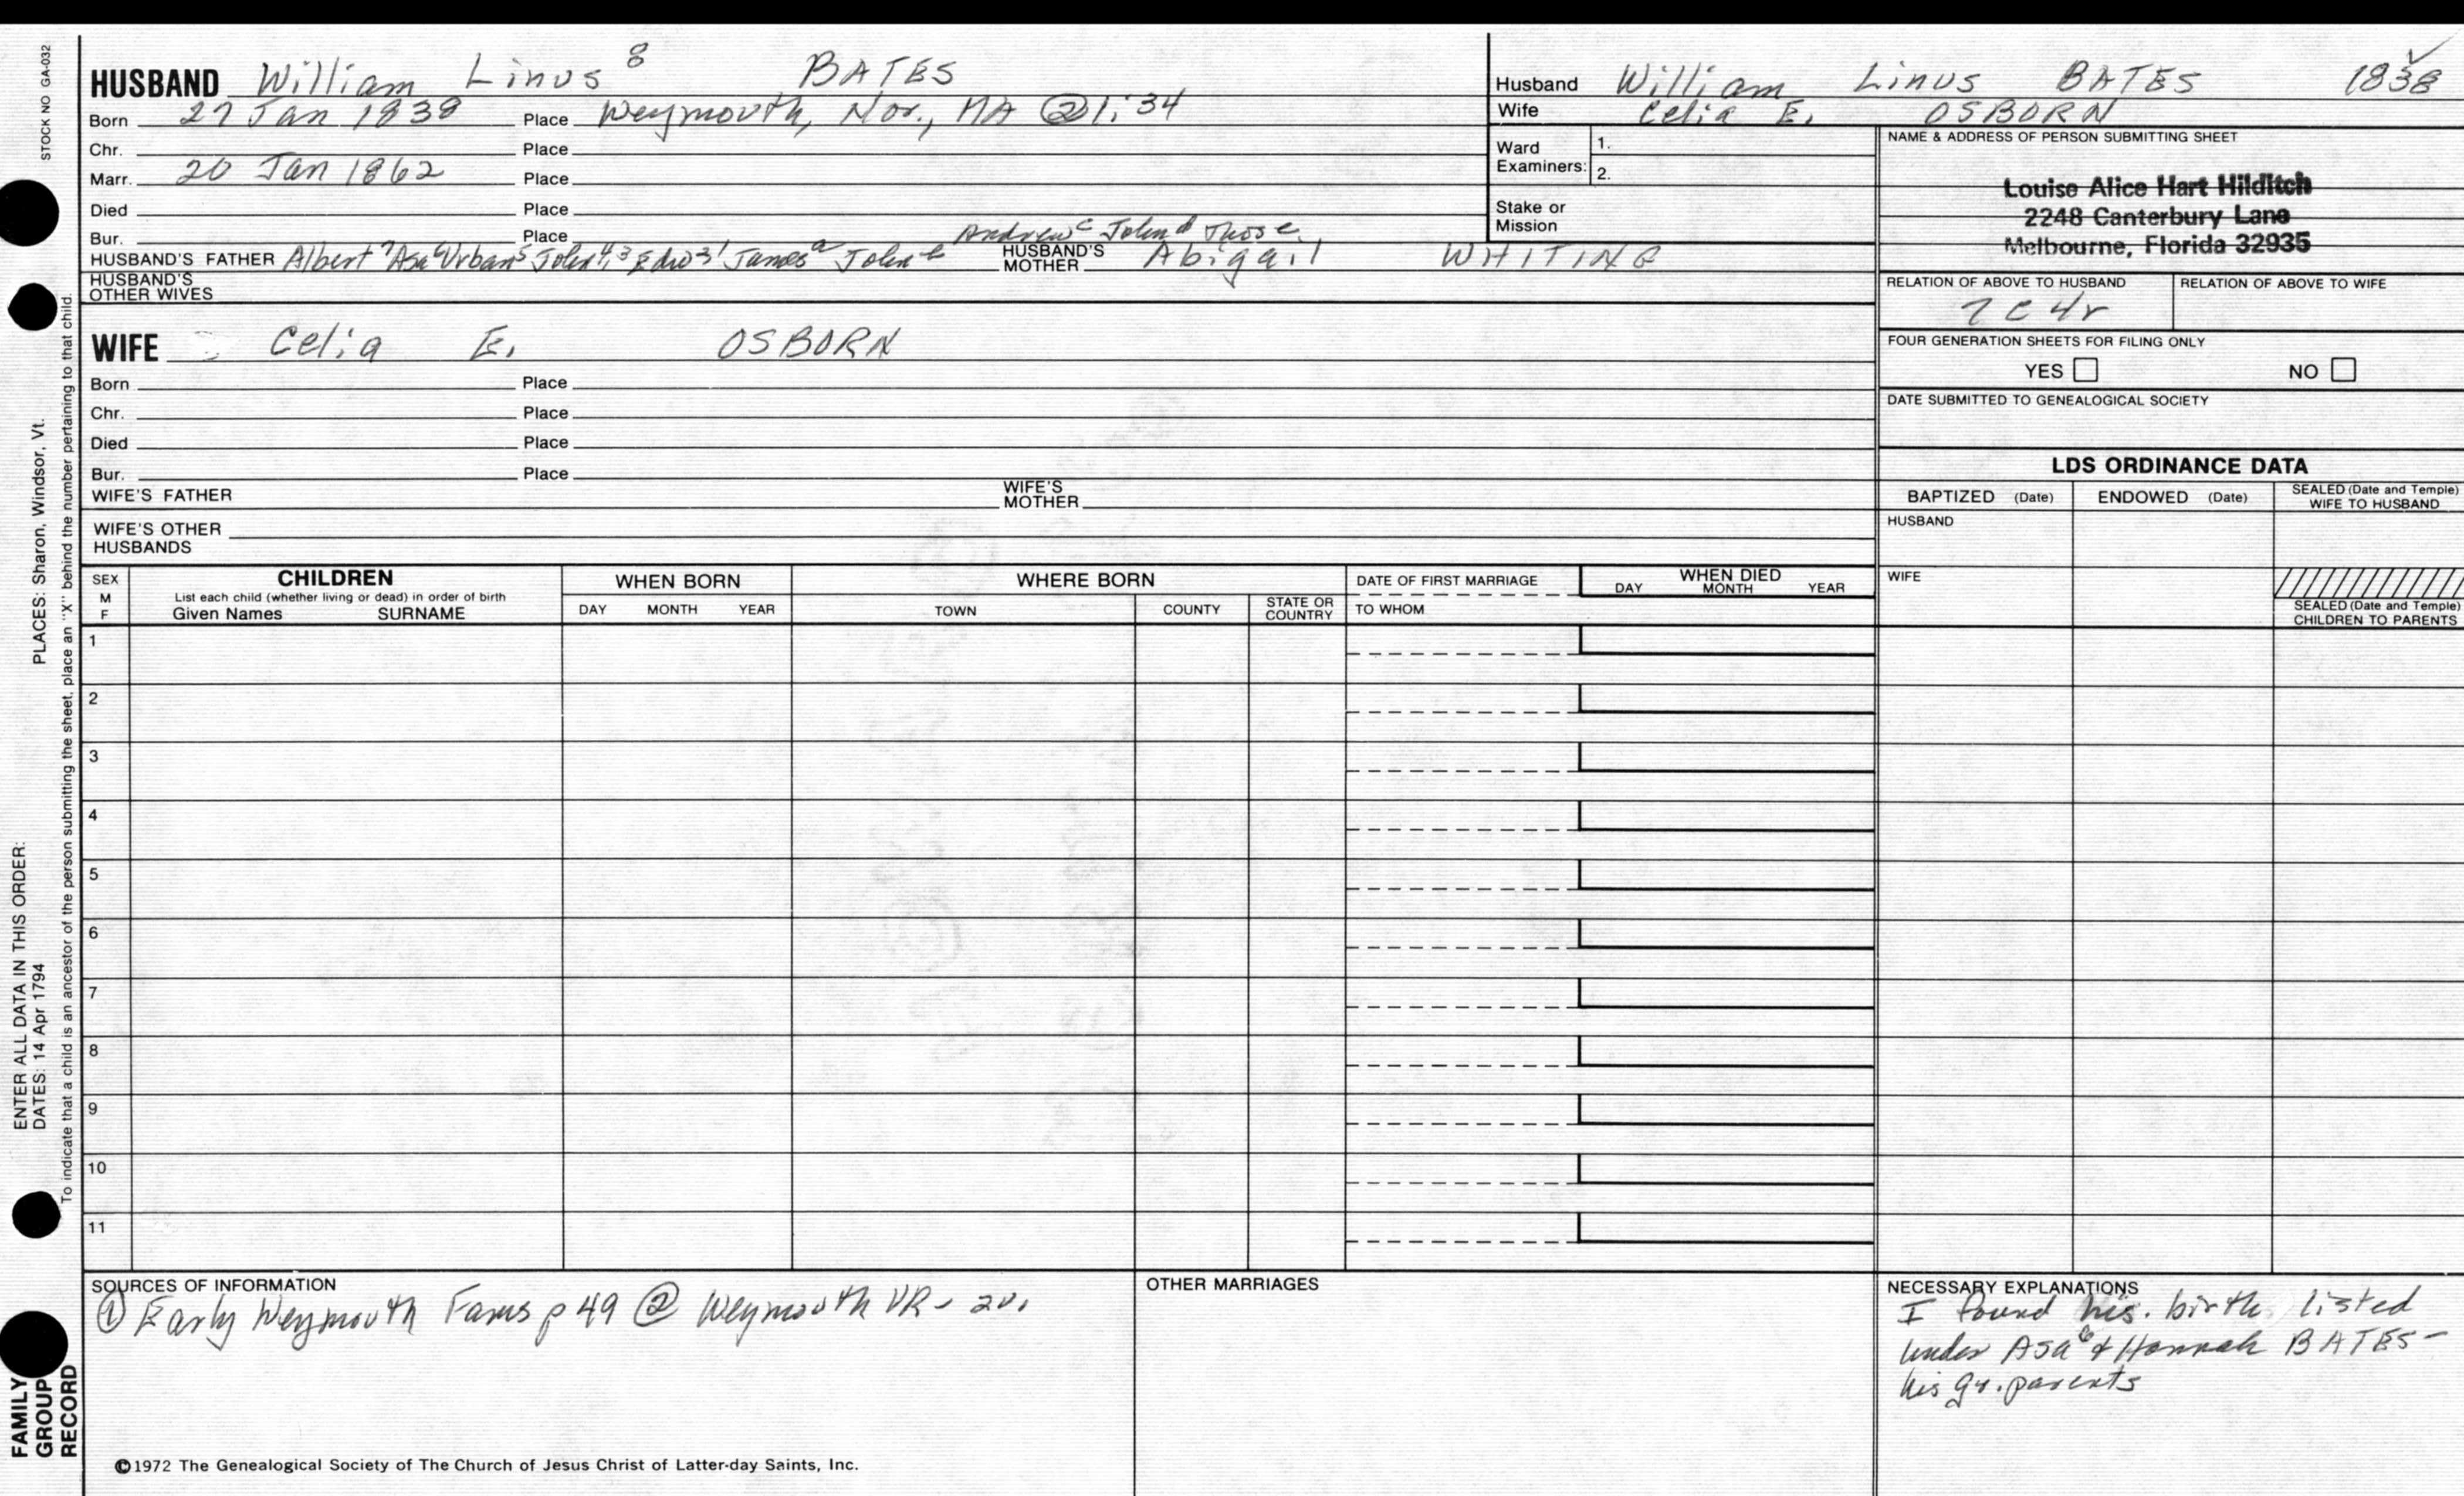 STOCK NO GA-032
HUSBAND William Linus 8 BATES
Born 27 Jan 1838 Place Weymouth, Nor., MA @1:34
Chr. Place
Marr. 20 Jan 1862 Place
Died Place
Bur. Place
Andrew c John d Thos e
HUSBAND'S FATHER Albert 7 Asa 6 Urban 5 John 4,3 Edw 2,1 James a John b HUSBAND'S MOTHER Abigail WHITING
HUSBAND'S OTHER WIVES
WIFE Celia E. OSBORN
Born Place
Chr. Place
Died Place
Bur. Place
WIFE'S FATHER WIFE'S MOTHER
WIFE'S OTHER HUSBANDS
Husband William Linus BATES 1838
Wife Celia E. OSBORN
Ward Examiners: 1.
2.
Stake or Mission
NAME & ADDRESS OF PERSON SUBMITTING SHEET
Louise Alice Hart Hilditch
2248 Canterbury Lane
Melbourne, Florida 32935
RELATION OF ABOVE TO HUSBAND RELATION OF ABOVE TO WIFE
7C4r
FOUR GENERATION SHEETS FOR FILING ONLY
YES NO
DATE SUBMITTED TO GENEALOGICAL SOCIETY
LDS ORDINANCE DATA
BAPTIZED (Date) ENDOWED (Date) SEALED (Date and Temple) WIFE TO HUSBAND
HUSBAND
WIFE
SEALED (Date and Temple) CHILDREN TO PARENTS
SEX M F
CHILDREN
List each child (whether living or dead) in order of birth
Given Names SURNAME
WHEN BORN
DAY MONTH YEAR
WHERE BORN
TOWN COUNTY STATE OR COUNTRY
DATE OF FIRST MARRIAGE
TO WHOM
WHEN DIED
DAY MONTH YEAR
1
2
3
4
5
6
7
8
9
10
11
SOURCES OF INFORMATION
① Early Weymouth Fams p 49 @ Weymouth VR - 2v.
OTHER MARRIAGES
NECESSARY EXPLANATIONS
I found his. birth listed
under Asa 6 & Hannah BATES -
his gr. parents
©1972 The Genealogical Society of The Church of Jesus Christ of Latter-day Saints, Inc.
ENTER ALL DATA IN THIS ORDER:
DATES: 14 Apr 1794 PLACES: Sharon, Windsor, Vt.
To indicate that a child is an ancestor of the person submitting the sheet, place an "X" behind the number pertaining to that child.
FAMILY
GROUP
RECORD